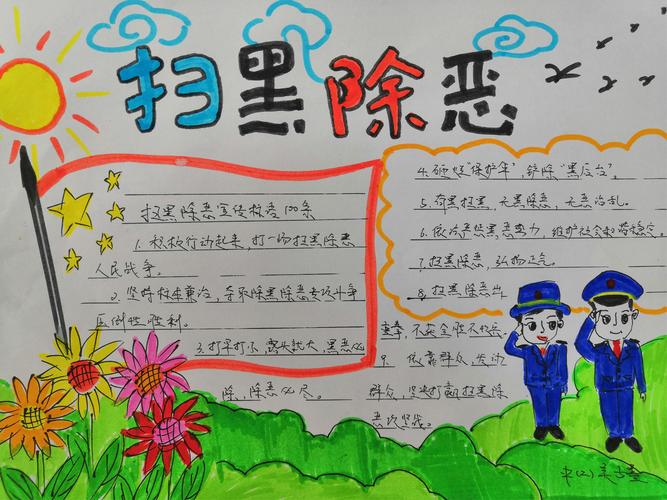 扫黑除恶
扫黑除恶宣传标语100条
1.积极行动起来，打一场扫黑除恶
人民战争。
2.坚持标本兼治，夺取除黑除恶专项斗争
压倒性胜利。
3.打早打小，露头就打，黑恶必
除，除恶必尽。
4.砸烂"保护伞"，铲除"黑后台"。
5.有黑扫黑，无黑除恶，无恶治乱。
6.依法严惩黑恶势力，维护社会和谐稳定。
7.扫黑除恶，弘扬正气。
8.扫黑除恶出
重拳，不获全胜不收兵。
9.依靠群众，发动
群众，坚决打赢扫黑除
恶攻坚战。